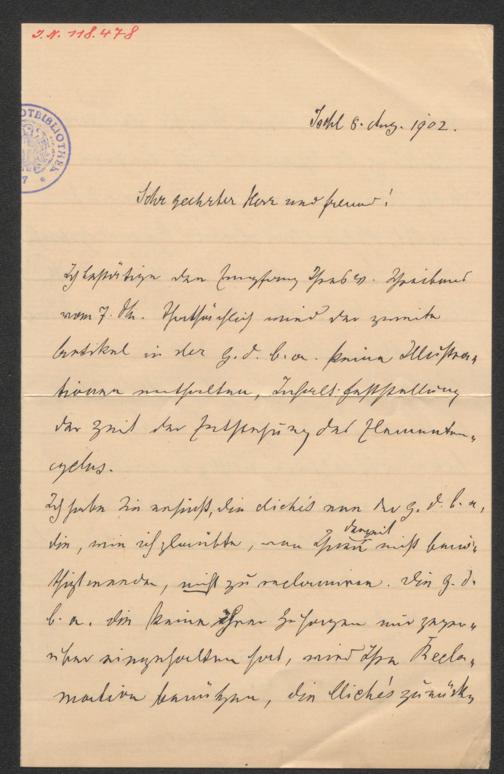 J.N. 118.478
Ischl 8. Aug. 1902.
Sehr geehrter Herr und Freund!
Ich bestätige den Empfang Ihres w. Schreibens
vom 7. th. Thatsächlich wird der zweite
Artikel in der G. d. b. a. keine Illustra-
tionen enthalten, behufs Feststellung
der Zeit der Entstehung des Elementen-
cyclus.
Ich habe Sie ersucht, die clichés von der G. d. b. a,
die, wie ich glaubte, von Ihnen derzeit nicht benö-
thigt werden, nicht zu reclamiren. Die G. d.
b. a. die keine Ihrer Zusagen mir gegen-
über eingehalten hat, wird Ihre Recla-
mation benützen, die Clichés zurück-